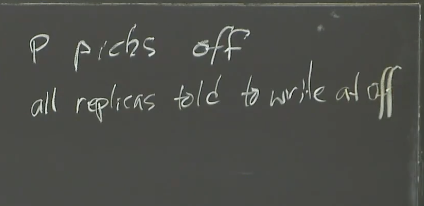 P picks off
all replicas told to write at off